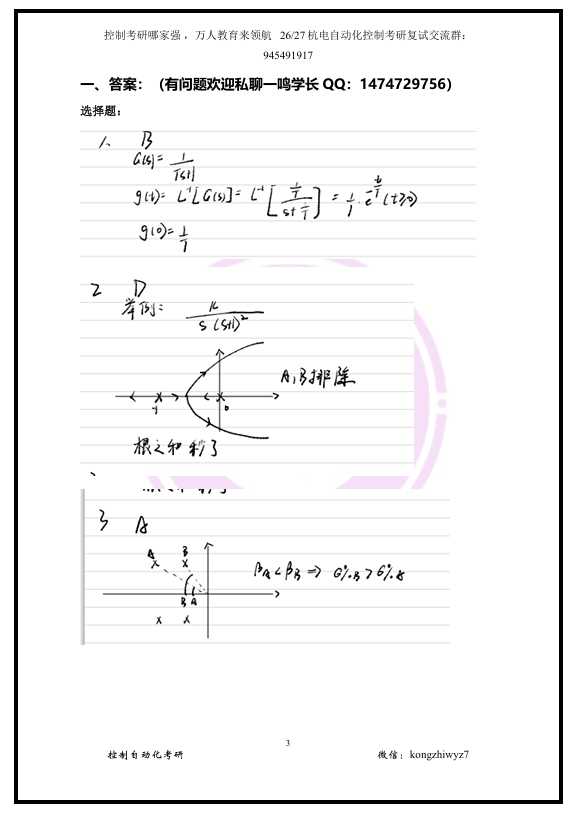 控制考研哪家强，万人教育来领航 26/27杭电自动化控制考研复试交流群：
945491917
一、答案：（有问题欢迎私聊一鸣学长QQ：1474729756）
选择题：
1、 B
G(s)= 1/(Ts+1)
g(t)= L⁻¹[G(s)]= L⁻¹[ (1/T)/(s+1/T) ] = 1/T · e^(-t/T) (t≥0)
g(0)= 1/T
2 D
举例： K/(s(s+1)²)
A,B排除
-1 0
根之和 秒了
3 A
A B
βA<βB ⇒ σ%B>σ%A
B A
3
控制自动化考研 微信：kongzhiwyz7